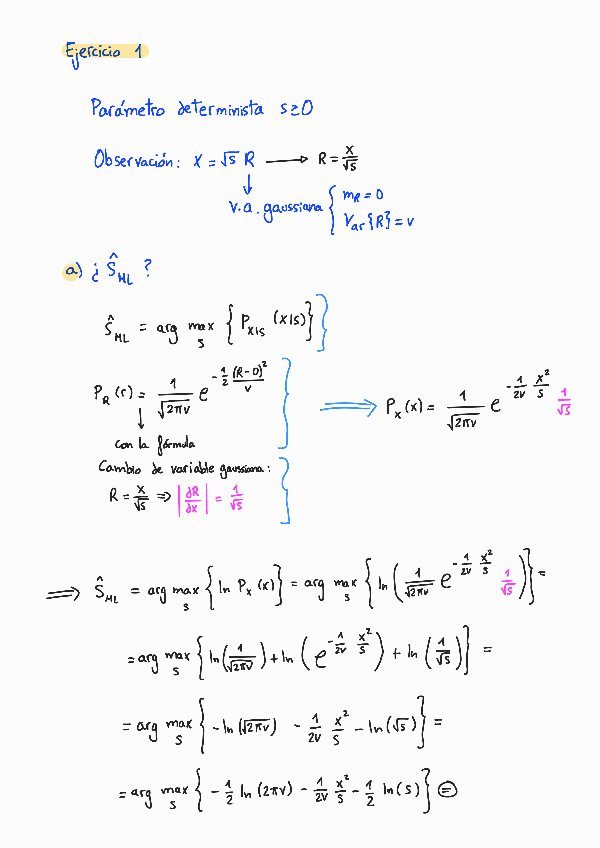 Ejercicio 1
Parámetro determinista s≥0
Observación: X = √s R → R = X/√s
↓
v.a. gaussiana { m_R = 0
Var{R} = v
a) ¿ ŝ_ML ?
ŝ_ML = arg max_s { P_X|S (x|s) }
P_R (r) = 1/√(2πv) e^(-1/2 (R-0)²/v) ⟹ P_X (x) = 1/√(2πv) e^(-1/2v x²/s) 1/√s
↓
con la fórmula
Cambio de variable gaussiana:
R = X/√s ⇒ |∂R/∂x| = 1/√s
⟹ ŝ_ML = arg max_s { ln P_X (x) } = arg max_s { ln ( 1/√(2πv) e^(-1/2v x²/s) 1/√s ) } =
= arg max_s { ln(1/√(2πv)) + ln ( e^(-1/2v x²/s) ) + ln (1/√s) } =
= arg max_s { -ln (√(2πv)) - 1/2v x²/s - ln(√s) } =
= arg max_s { -1/2 ln (2πv) - 1/2v x²/s - 1/2 ln(s) } ⊜